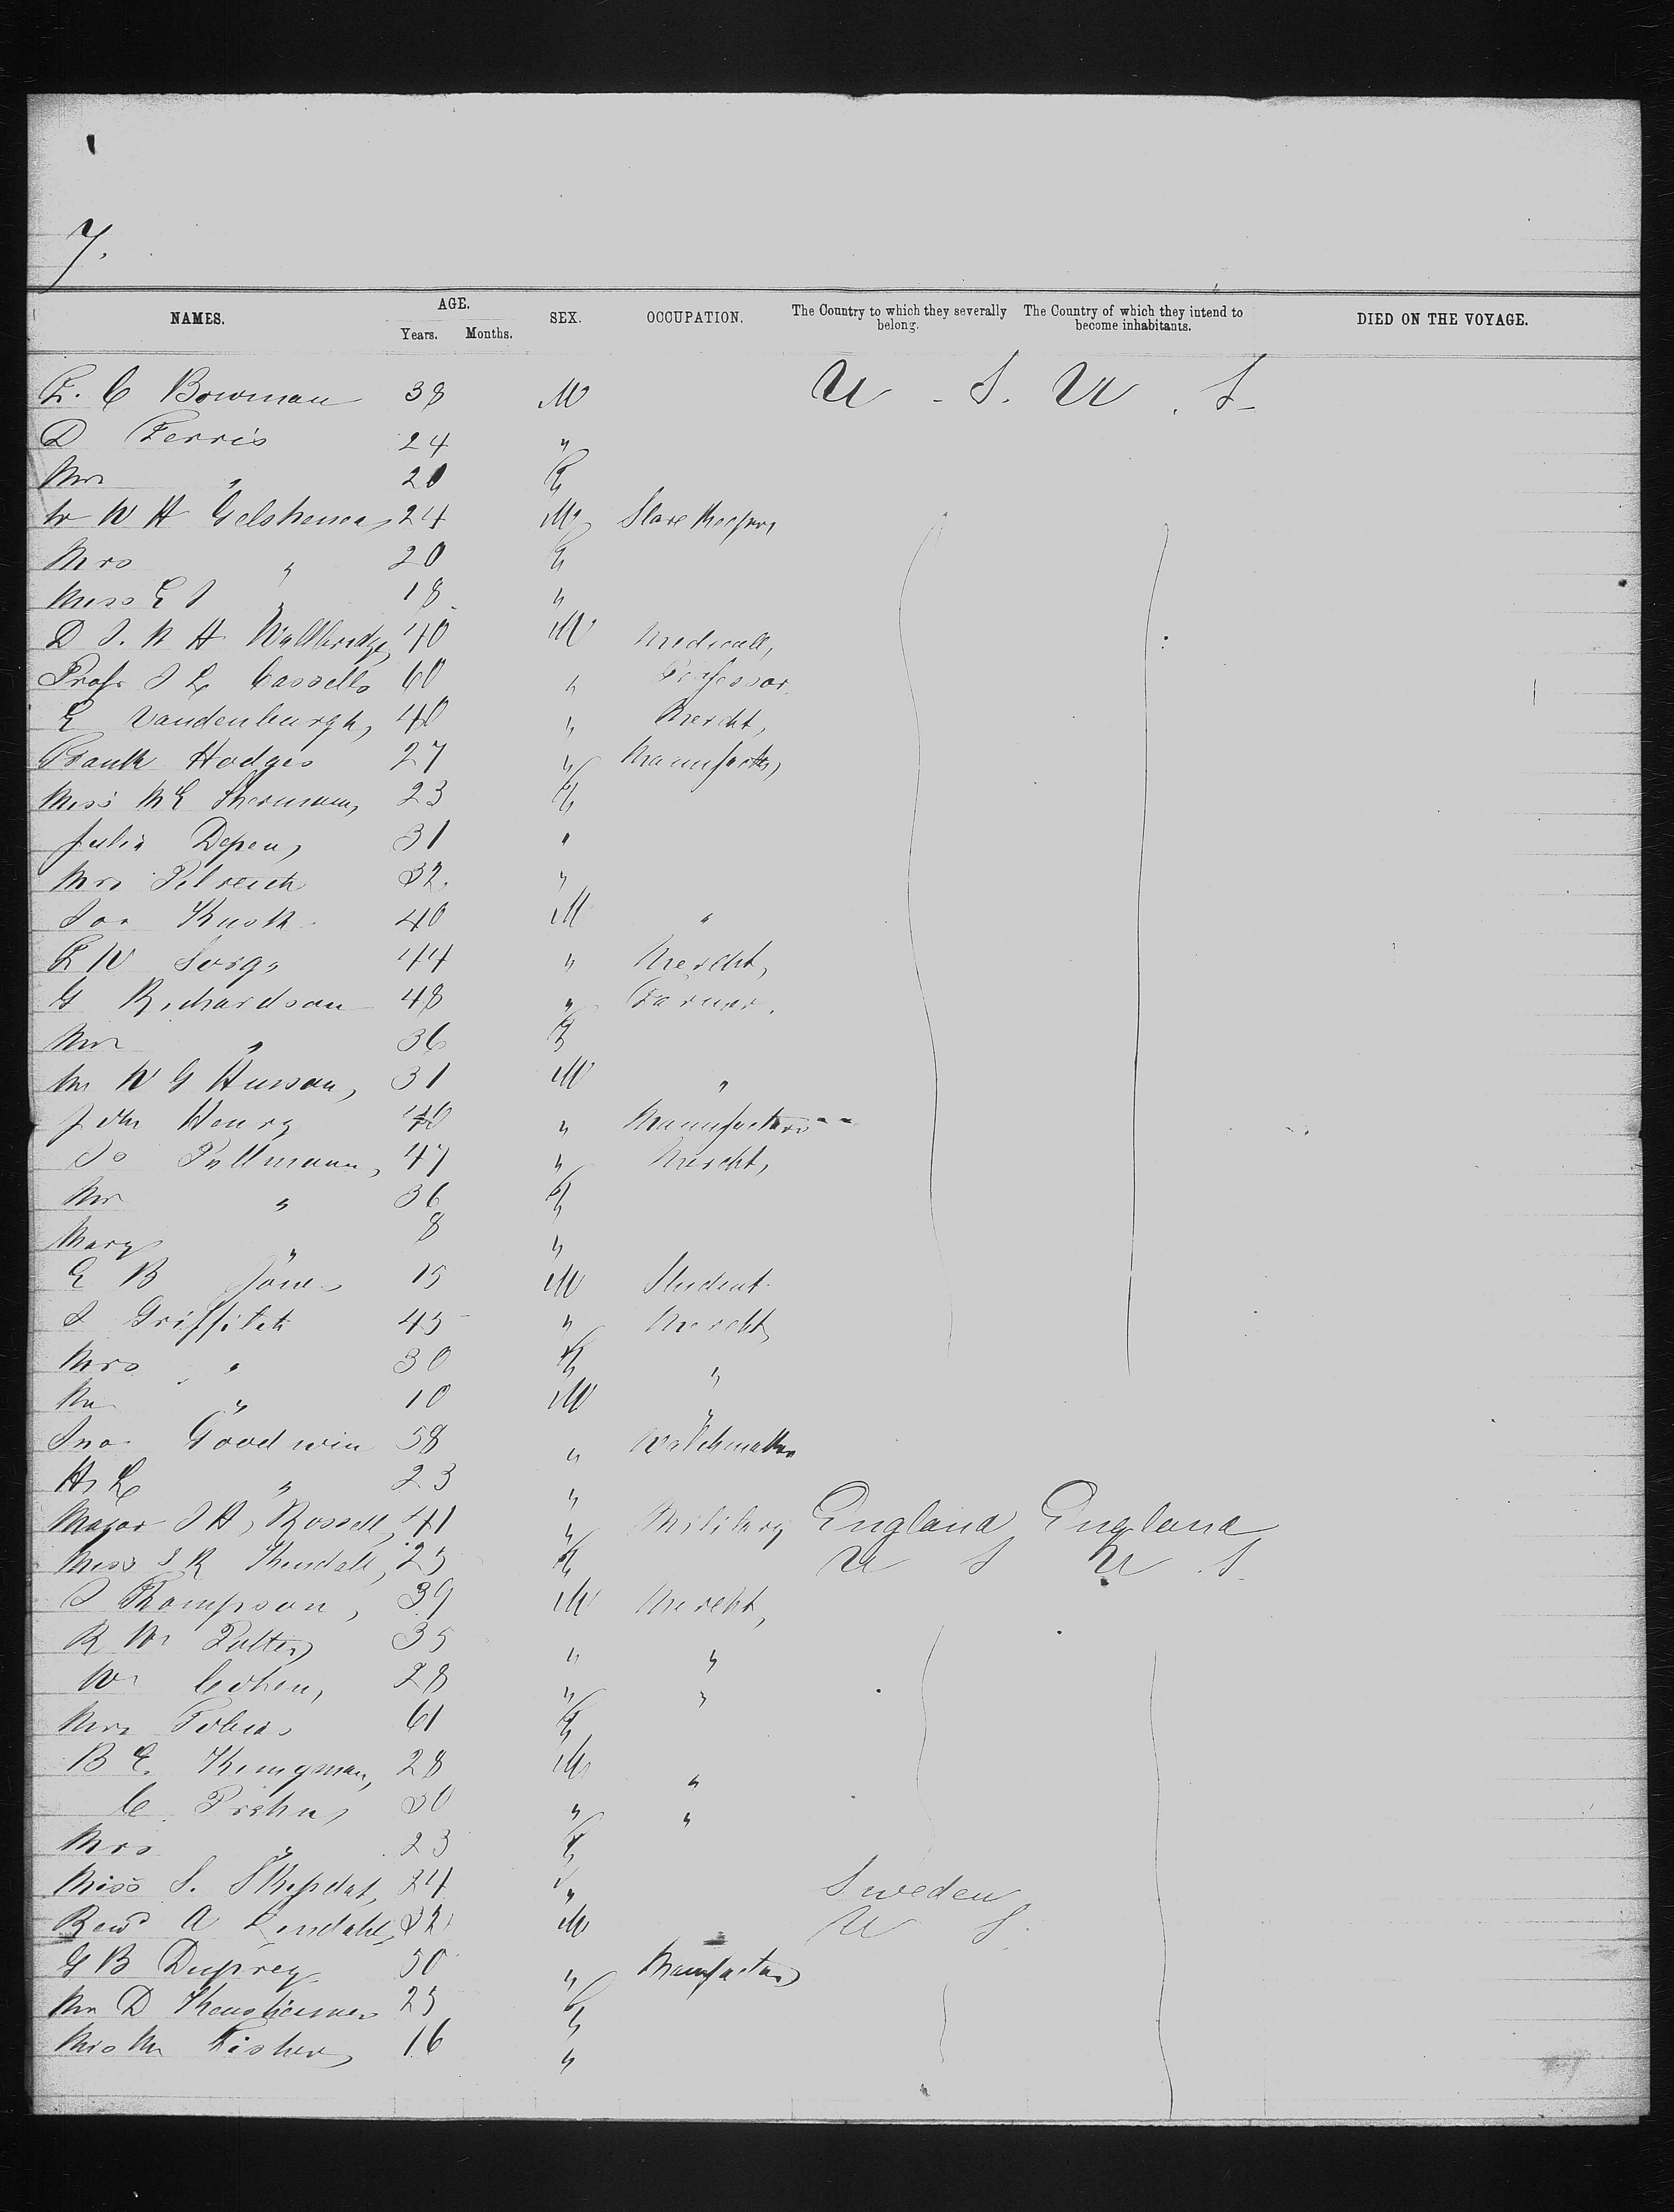 7.
NAMES. AGE. Years. Months. SEX. OCCUPATION. The Country to which they severally belong. The Country of which they intend to become inhabitants. DIED ON THE VOYAGE.
C Bowman 38 M U - S. U . S -
D Ferris 24 "
Mrs " 20 F
W H 24 M
Mrs " 20 F
Miss E J " 18 "
D J. W H Wallbridge, 40 M Medicall,
Profr J L Cassells 60 " Professor.
E Vandenburgh, 40 " Mercht,
Frank Hodges 27 "
Miss M E Sherman, 23 F
Julia Depen, 31 "
Mrs 32 "
Kush 40 M "
W 44 " Mercht,
G Richardson 48 " Farmer.
Mrs " 36 F
Mr W G 31 M "
John Henry 40 " Manufacturer - -
Pullmann, 47 " Mercht,
Mrs " 36 F
Mary " 8 "
E B Jones 15 M Student
J Griffith 45 " Mercht,
Mrs " 30 F "
" 10 M "
Jno. Goodwin 58 " Watchmaker
L " 23 "
Major J H, Rossell, 41 " Military England England
Miss J R Kendall, 25 F U S U . S.
J Thompson, 39 M Mercht,
R W 35 " "
Wm Cohen, 28 " "
Mrs Tobias 61 F
B E. Kingman, 28 M "
C. Prehn, 30 " "
Mrs " 23 F
Miss S. 24 " Sweden
Revd A Lindahl, 32 M U S.
G B Duprey 50 " Manufacturer
D 25 F
Fisher, 16 "